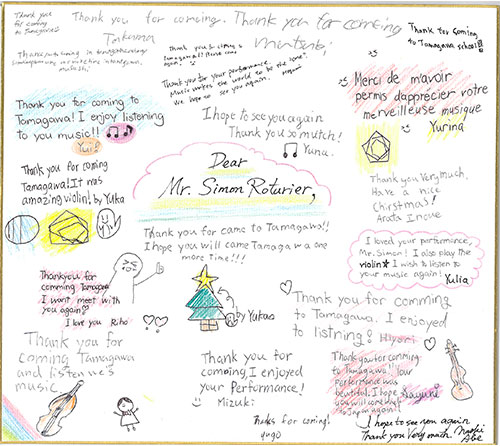 Thank you
for coming
to Tamagawa!!
Thank you for comeing.
Thank you for comeing
Thank for coming
to Tamagawa school!!
Thank you for your performance.
Music makes the world to be the same.
We hope to see you again.
Merci de m'avoir
permis d'apprécier votre
merveilleuse musique
Yurina
Thank you for coming to
Tamagawa! I enjoy listening
to you music!!
I hope to see you again
Thank you so mutch!
Yuna.
Thank you for coming
Tamagawa! It was
amazing violin! by Yuka
Dear
Mr. Simon Roturier,
Thank you Very much.
Have a nice
Chirstmas!
Arata Inoue
Thank you for came to Tamagawa!!
I hope you will came Tamagawa one
more time!!!
I loved your performance,
Mr. Simon! I also play the
violin★ I wish to listen to
your music again!
Yulia
Thankyou for
comming Tamagawa
I want meet with
you again♡
I love you Riho
by Yukao
Thank you for comming
to Tamagawa. I enjoyed
to listning!
Hiyori
Thank you for
coming Tamagawa
and listen ues
music.
Thank you for
coming, I enjoyed
your Performance!
Mizuki
Thank you for comming
to Tamagawa!! Your
performance was
beautiful. I hope
you will come
to Japan again!
Sayuri
Thanks for coming!
yugo
I hope to see you again
Thank you Very much.
Abe